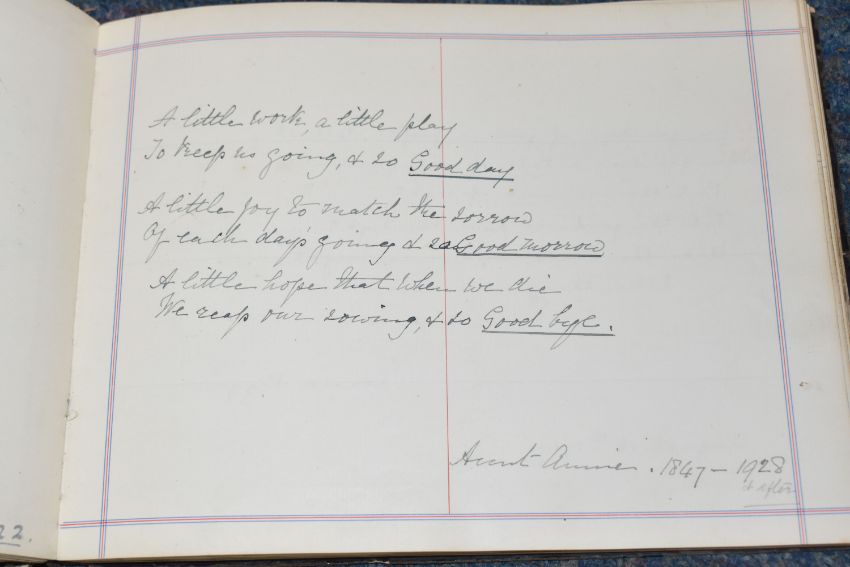 A little work, a little play
To keep us going, & so Good day
A little joy to match the sorrow
Of each day's going & so Good morrow
A little hope that when we die
We reap our sowing, & so Good bye.
Aunt Annie. 1847 – 1928
& after
22.